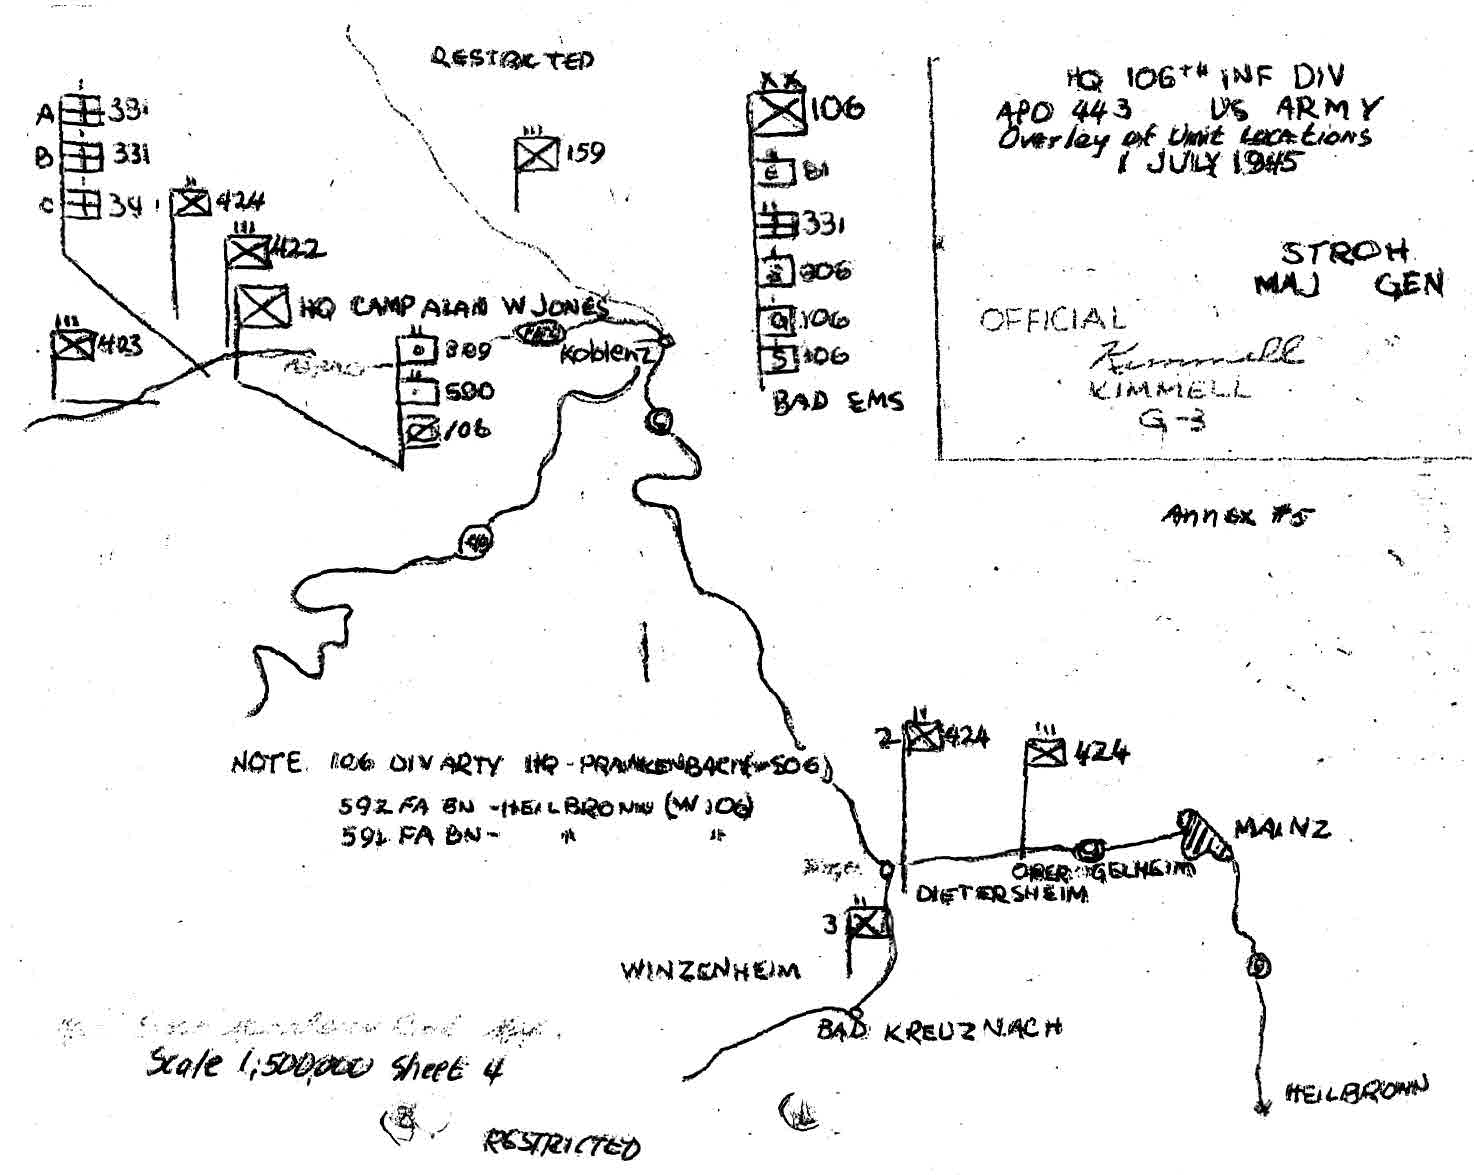 RESTRICTED
HQ 106TH INF DIV
APO 443 US ARMY
Overlay of Unit Locations
1 JULY 1945
STROH
MAJ GEN
OFFICIAL
Kimmell
KIMMELL
G-3
Annex #5
A 331
B 331
C
424
422
423
159
HQ CAMP ALAN W JONES
589
590
106
Koblenz
XX
106
81
331
806
106
106
BAD EMS
NOTE 106 DIV ARTY HQ -
592 FA BN - HEILBRONN (W
591 FA BN - " "
2 424
424
MAINZ
OBER GELHEIM
DIETERSHEIM
3
WINZENHEIM
BAD KREUZNACH
HEILBRONN
Scale 1:500,000 Sheet 4
RESTRICTED